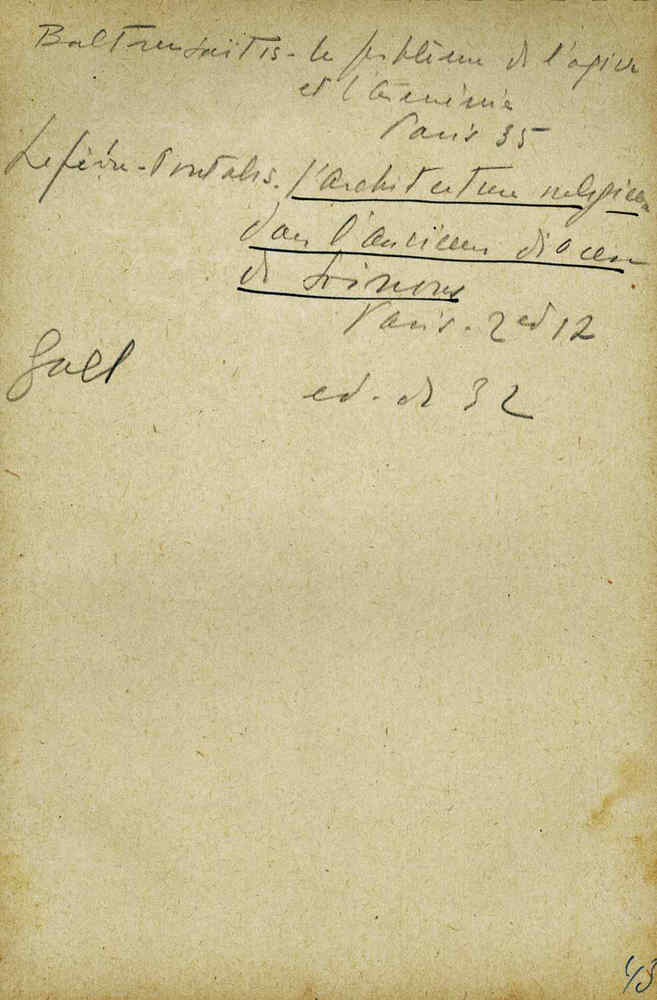 Baltrusaitis - Le problème de l'ogive
et l'Arménie
Paris 35
Lefèvre-Pontalis. l'architecture religieuse
dans l'ancien diocèse
de Soissons
Paris. 2 ed 12
Gall
ed. de 32
43